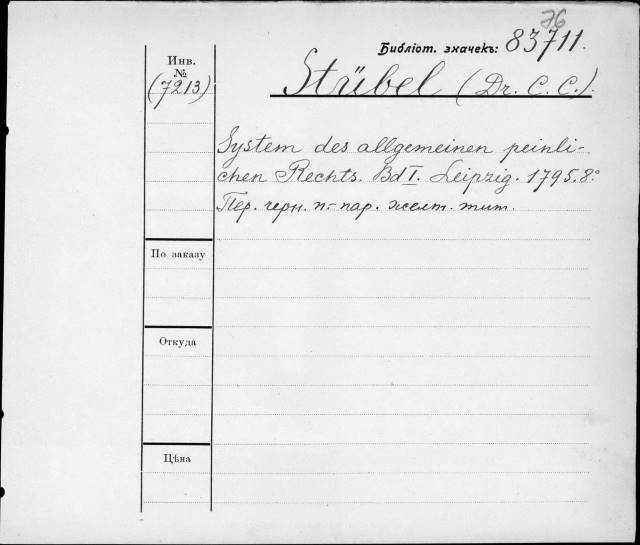 76
Библіот. значекъ: 83711.
Инв.
№
(7213)
Stübel (Dr. C. C.).
System des allgemeinen peinli-
chen Rechts. Bd I. Leipzig. 1795. 8°
Пер. черн. п.-пар. желт. тит.
По заказу
Откуда
Цѣна